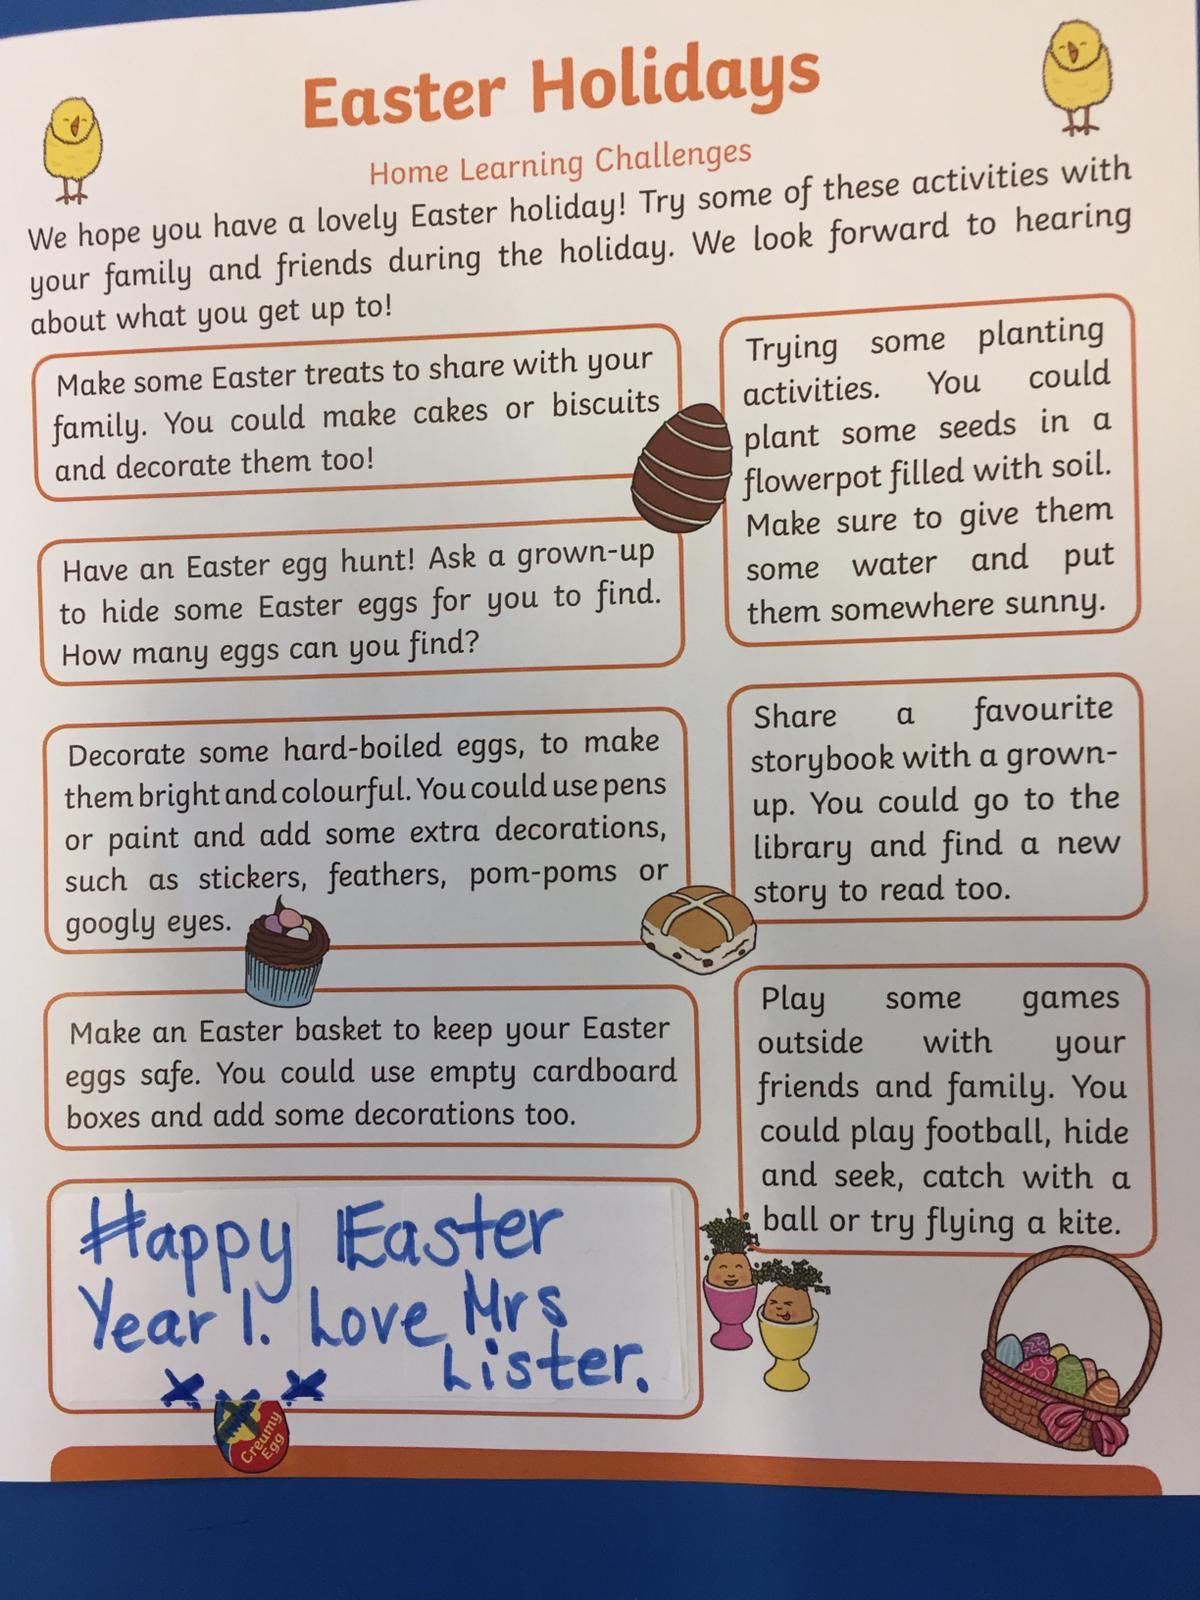 Easter Holidays
Home Learning Challenges
We hope you have a lovely Easter holiday! Try some of these activities with
your family and friends during the holiday. We look forward to hearing
about what you get up to!
Make some Easter treats to share with your
family. You could make cakes or biscuits
and decorate them too!
Have an Easter egg hunt! Ask a grown-up
to hide some Easter eggs for you to find.
How many eggs can you find?
Decorate some hard-boiled eggs, to make
them bright and colourful. You could use pens
or paint and add some extra decorations,
such as stickers, feathers, pom-poms or
googly eyes.
Make an Easter basket to keep your Easter
eggs safe. You could use empty cardboard
boxes and add some decorations too.
Happy Easter
Year 1. Love Mrs
Lister.
x x x
Creumy
Egg
Trying some planting
activities. You could
plant some seeds in a
flowerpot filled with soil.
Make sure to give them
some water and put
them somewhere sunny.
Share a favourite
storybook with a grown-
up. You could go to the
library and find a new
story to read too.
Play some games
outside with your
friends and family. You
could play football, hide
and seek, catch with a
ball or try flying a kite.